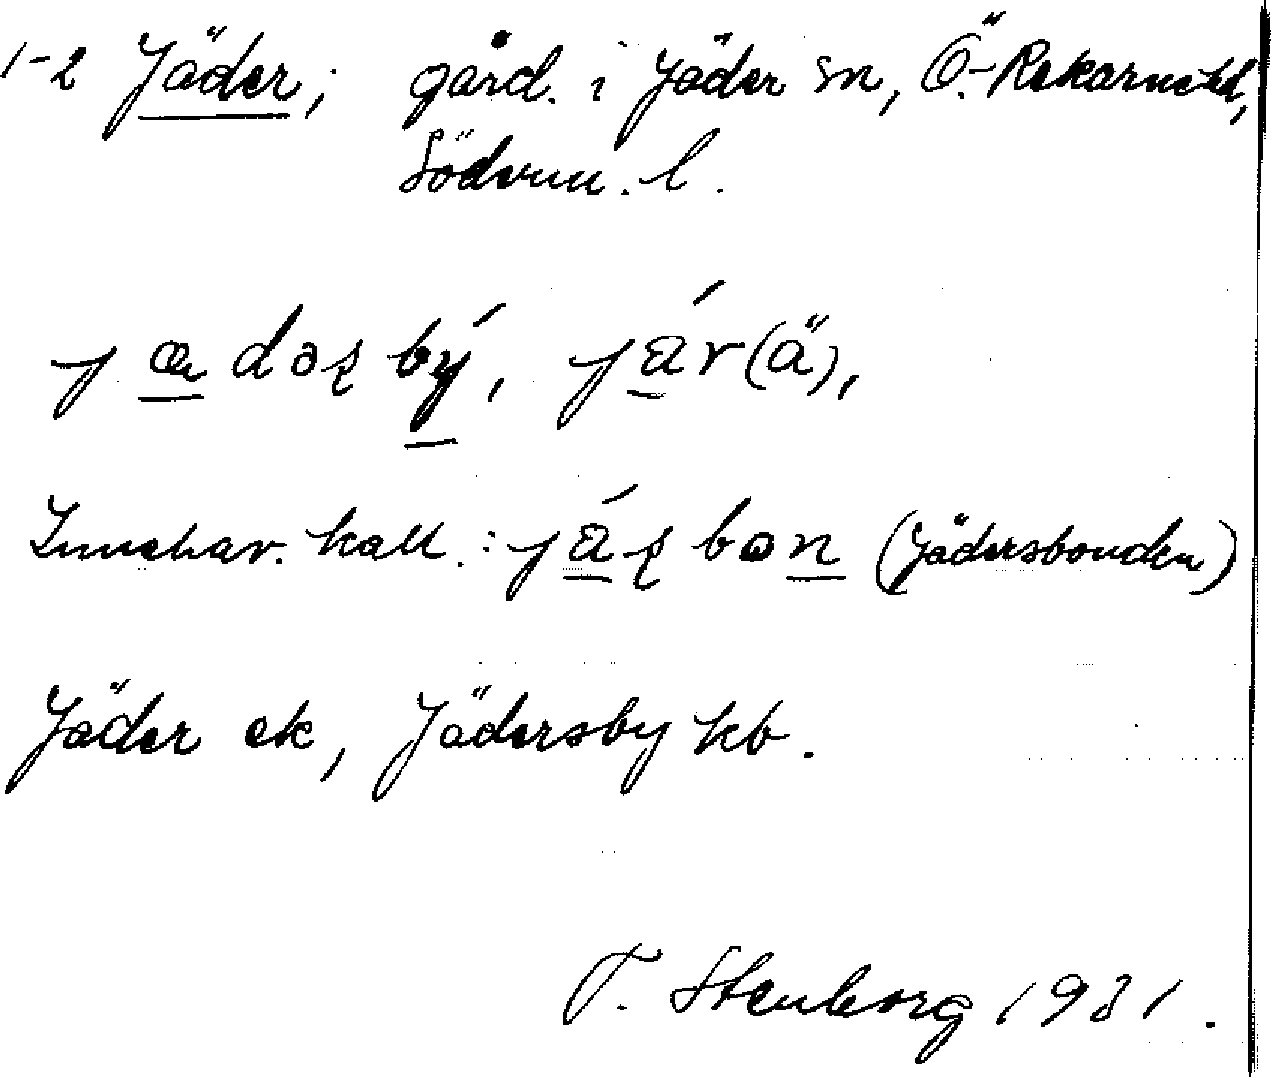 1-2 Jäder; gård. i Jäder sn, Ö.-Rekarne hd,
Söderm. l.
jædəʂbý, jä́r(ä),
Innehav. kall.: jä́ʂbon (Jädersbonden)
Jäder ek, Jädersby kb.
T. Stenborg 1931.